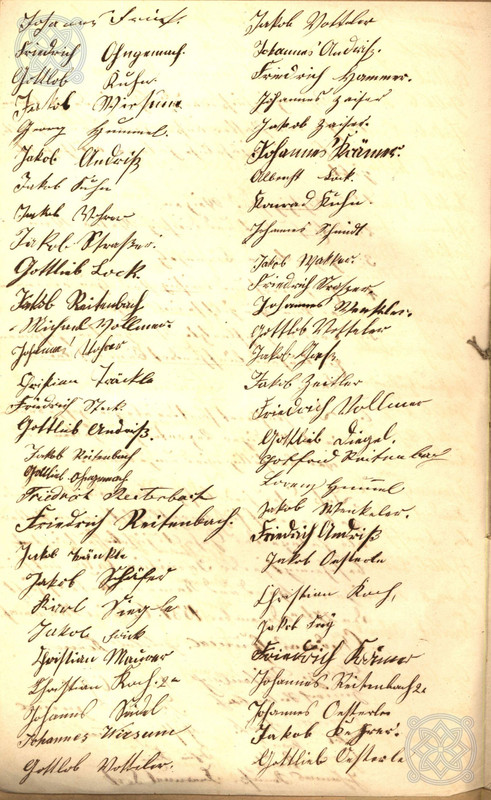 Johannes
Friedrich Ohngemach.
Gottlob Kuhn.
Jakob Wirsum
Georg Hummel.
Jakob Andriß
Jakob Kuhn
Jakob Wohrer
Jakob Straßer.
Gottlieb Lock
Jakob Reitenbach
Michael Vollmer
Johannes
Christian Träckle
Friedrich Steck
Gottlieb Andriß.
Jakob Reitenbach
Gottlieb Ohngemach
Friedrich Reitenbach
Friedrich Reitenbach.
Jakob Tränkle
Jakob Schäfer
Karl Siegle
Jakob Frick
Christian Maurer
Christian Koch. 2n
Johannes Seidel
Johannes Wirsum
Gottlob Votteler.
Jakob Votteler
Johannes Andriß.
Friedrich Hammer.
Johannes Zaiser
Jakob Zaiser.
Johannes Krämer.
Albrecht Lock.
Konrad Kuhn.
Johannes Schmidt
Jakob Walker
Friedrich Straßer
Johannes Wenkeler.
Gottlob Votteler
Jakob
Jakob Zeitler
Friedrich Vollmer
Gottlieb Siegel.
Gottfried Reitenbach
Lorenz Hummel
Jakob Wenkeler.
Friedrich Andriß
Jakob Oesterle
Christian Koch,
Jakob
Friedrich Krämer
Johannes Reitenbach 2n
Johannes Oesterle
Jakob
Gottlieb Oesterle